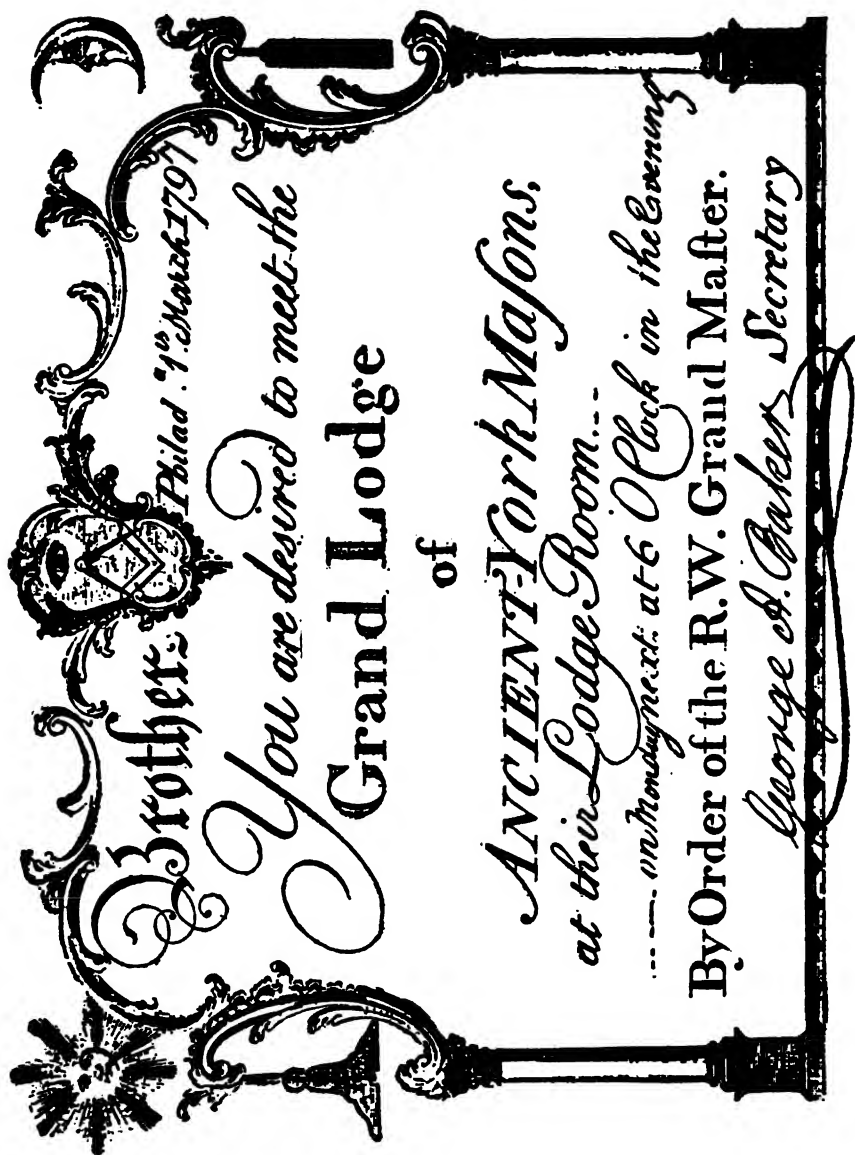 Brother. Philad.ᵃ 1ˢᵗ March 1797
You are desired to meet the
Grand Lodge
of
ANCIENT-York Maſons,
at their Lodge Room...
...... on Monday next at 6 O Clock in the Evening
By Order of the R.W. Grand Maſter.
George A. Baker Secretary